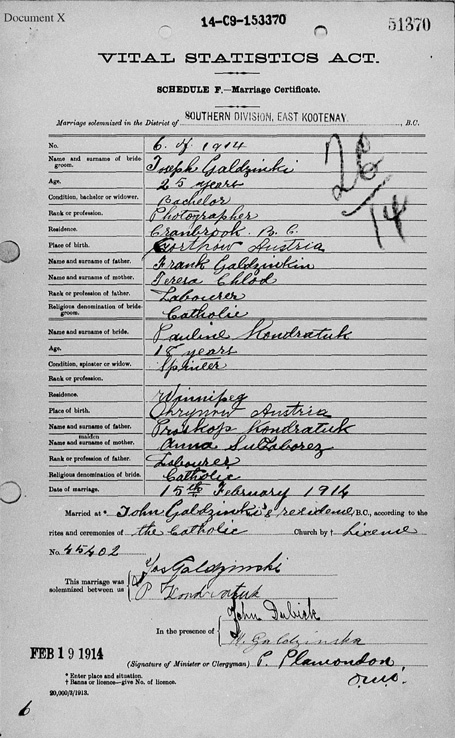 Document X
14-C9-153370
51370
VITAL STATISTICS ACT.
SCHEDULE F.—Marriage Certificate.
Marriage solemnized in the District of SOUTHERN DIVISION, EAST KOOTENAY, B.C.
No. 6 of 1914
Name and surname of bridegroom. Joseph Galdzinski
Age. 25 years
Condition, bachelor or widower. Bachelor
Rank or profession. Photographer
Residence. Cranbrook B.C.
Place of birth. Austria
Name and surname of father. Frank Galdzinkin
Name and surname of mother. Teresa Chlod
Rank or profession of father. Labourer
Religious denomination of bridegroom. Catholic
Name and surname of bride. Pauline Kondratuk
Age. 18 years
Condition, spinster or widow. Spinster
Rank or profession.
Residence. Winnipeg
Place of birth. Chrynow Austria
Name and surname of father. Proskop Kondratuk
Name and maiden surname of mother. Anna
Rank or profession of father. Labourer
Religious denomination of bride. Catholic
Date of marriage. 15th February 1914
26/14
Married at * John Galdzinski's residence, B.C., according to the
rites and ceremonies of the Catholic Church by † License
No. 45402
This marriage was solemnized between us
Jos Galdzinski
P Kondratuk
In the presence of
John Dubick
Galdzinska
FEB 19 1914
(Signature of Minister or Clergyman) P. Plamondon
o.m.i.
* Enter place and situation.
† Banns or licence—give No. of licence.
20,000/3/1913.
6